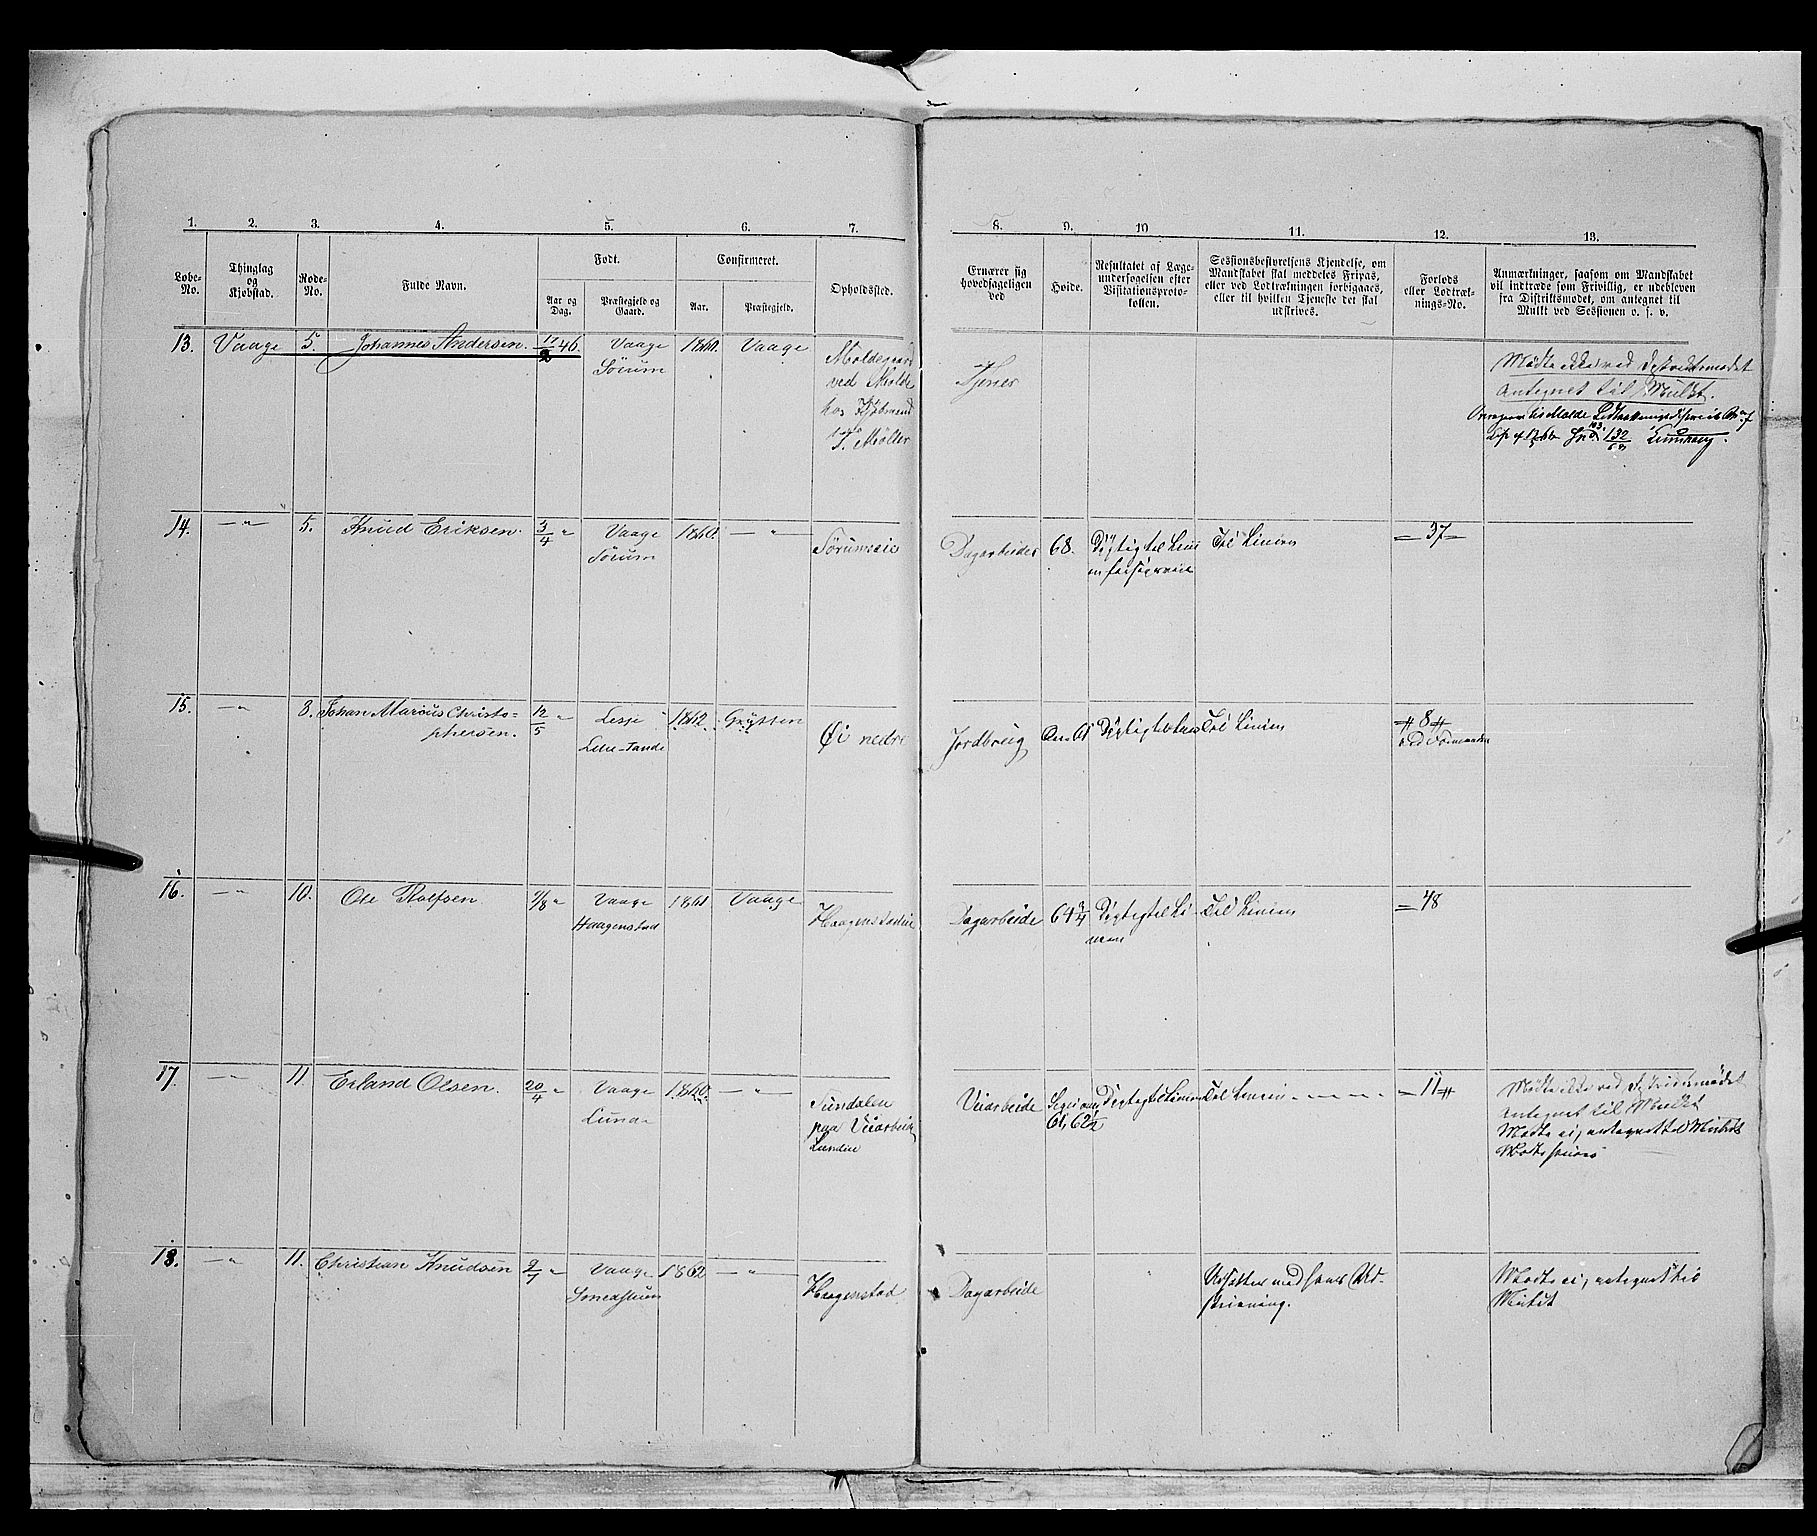 1. 2. 3. 4. 5. 6. 7. 8. 9. 10 11. 12. 13.
Løbe-No. Thinglag og Kjøbstad. Rode-No. Fulde Navn. Født. Confirmeret. Opholdssted.
Aar og Dag. Præstegjeld og Gaard. Aar. Præstegjeld.
Ernærer sig hovedsageligen ved Høide. Resultatet af Læge-undersøgelsen efter Visitationsproto-kollen. Sessionsbestyrelsens Kjendelse, om Mandskabet skal meddeles Fripas, eller ved Lodtrækningen forbigaaes, eller til hvilken Tjeneste det skal udskrives. Forlods eller Lodtræk-nings-No. Anmærkninger, saasom om Mandskabet vil indtræde som Frivillig, er udebleven fra Distriktsmødet, om antegnet til Mulkt ved Sessionen o. s. v.
13. Vaage 5. Johannes Andersen. 17/2 46. Vaage 1860. Vaage Moldegaard
Sørum ved Molde
hos Kjøbmand
P. Møller
Tjener
Mødte ikke ved Distriktsmødet
antegnet til Mulkt.
14. —"— 5. Knud Eriksen. 3/4 " Vaage 1860. —"— Sørumseie
Sørum
Dagarbeider 68. Dygtig til Lini Til Linien 37
15. —"— 8. Johan Marius Christo-
phersen. 12/5 " Lesje 1862. Grytten Øi nedre
Lille-Tande
Jordbrug Til Linien 8
16. —"— 10. Ole Rolfsen 9/8 " Vaage 1861 Vaage Haagenstadeie
Haagenstad
Dagarbeide 64 3/4 Dygtig til Li- Til Linien 48
nien
17. —"— 11 Erland Olsen. 20/4 " Vaage 1860. —"— Sundalen
Lunde paa Veiarbeide
Lundeie
Veiarbeide Dygtig til Linien Til Linien 11
Mødte ikke ved Distriktsmødet
antegnet til Mulkt
Mødte ei, antegnet til Mulkt
Mødte senere
18. —"— 11. Christian Knudsen 2/7 " Vaage 1862 —"— Haagenstad
Dagarbeide Udsættes med hans Ud-
skrivning.
Mødte ei, antegnet til
Mulkt